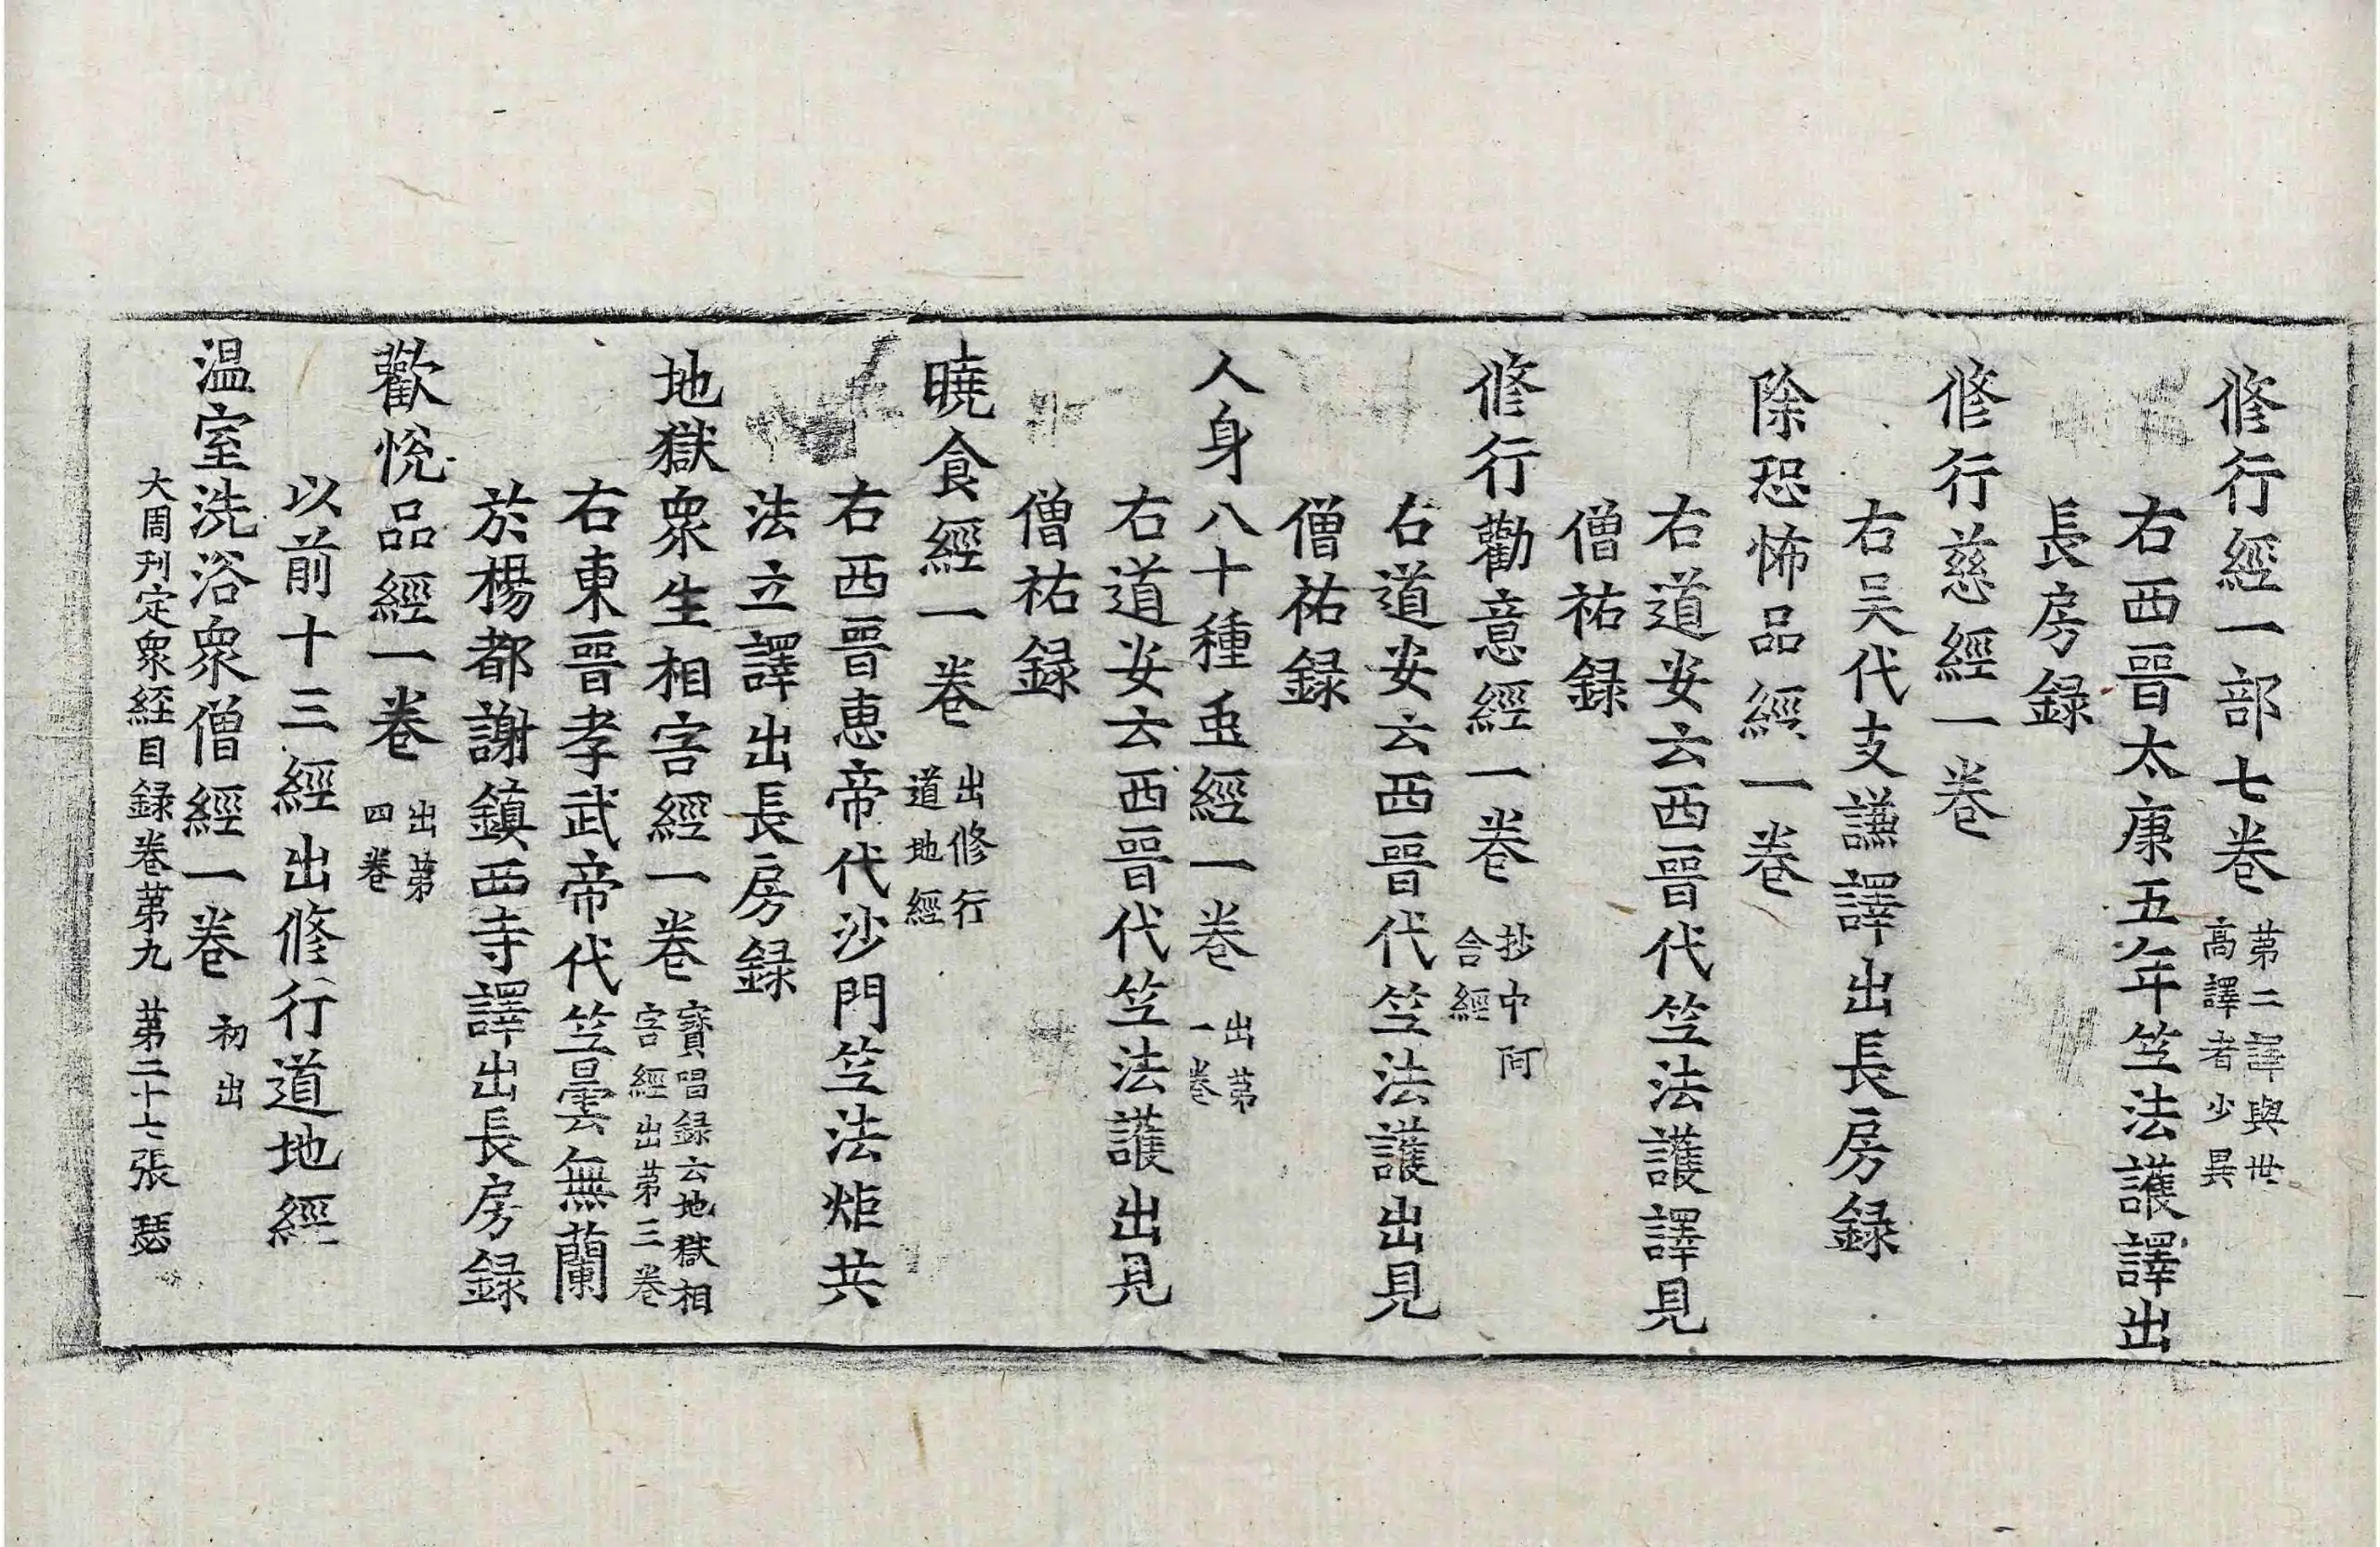 修行經一部七卷 第二譯與世高譯者少異
右西晉太康五年竺法護譯出
長房錄
修行慈經一卷
右吳代支謙譯出長房錄
除恐怖品經一卷
右道安云西晉代竺法護譯見
僧祐錄
修行勸意經一卷 抄中阿含經
右道安云西晉代竺法護出見
僧祐錄
人身八十種䖝經一卷 出第一卷
右道安云西晉代竺法護出見
僧祐錄
曉食經一卷 出修行道地經
右西晉惠帝代沙門竺法炬共
法立譯出長房錄
地獄眾生相害經一卷 寶唱錄云地獄相害經出第三卷
右東晉孝武帝代竺曇無蘭
於楊都謝鎮西寺譯出長房錄
歡悅品經一卷 出第四卷
以前十三經出修行道地經
温室洗浴眾僧經一卷 初出
大周刊定眾経目録卷第九 第二十七張 瑟